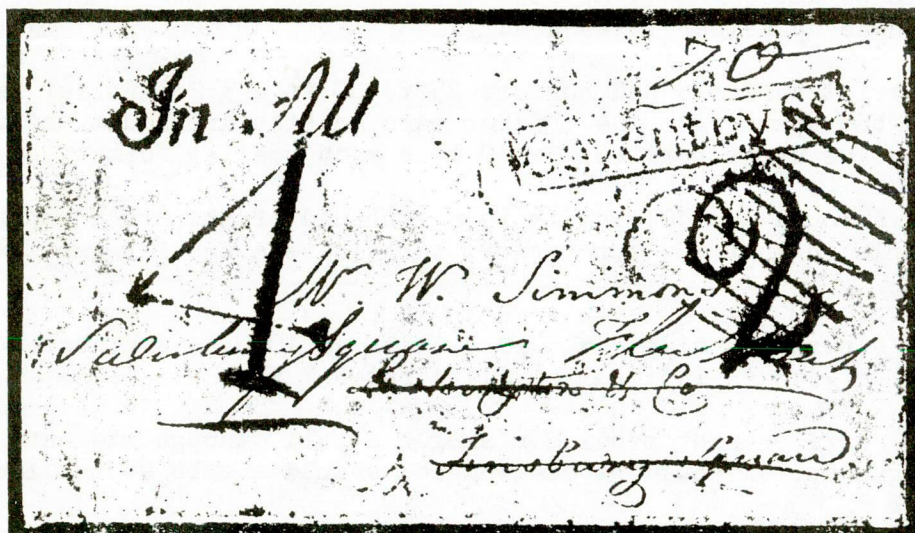 In All
70
Coventry St
4
2
W. Simmons
Salisbury Square Fleet Street
& Co
Finsbury Square